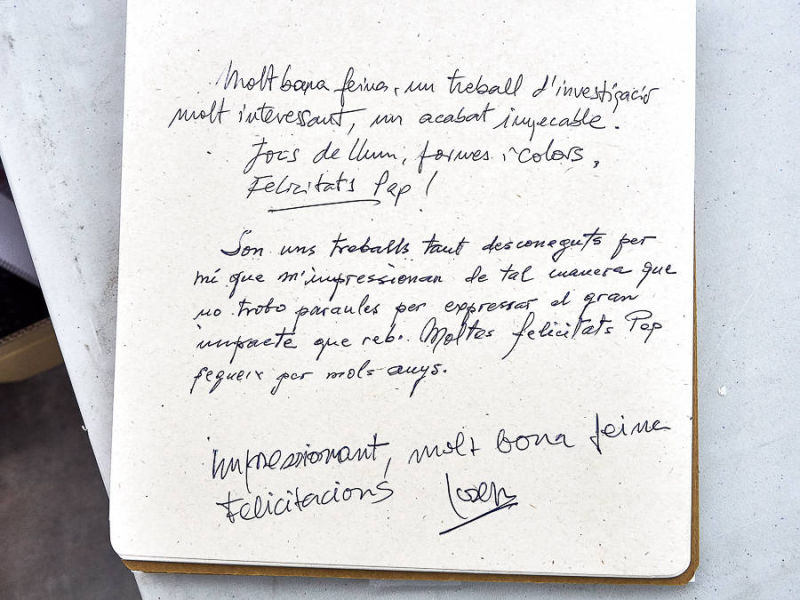 Molt bona feina, un treball d'investigació
molt interessant, un acabat impecable.
Jocs de llum, formes i colors,
Felicitats Pep!
Son uns treballs tant desconeguts per
mi que m'impressionan de tal manera que
no trobo paraules per expressar el gran
impacte que reb. Moltes felicitats Pep
segueix per mols anys.
Impressionant, molt bona feina
Felicitacions